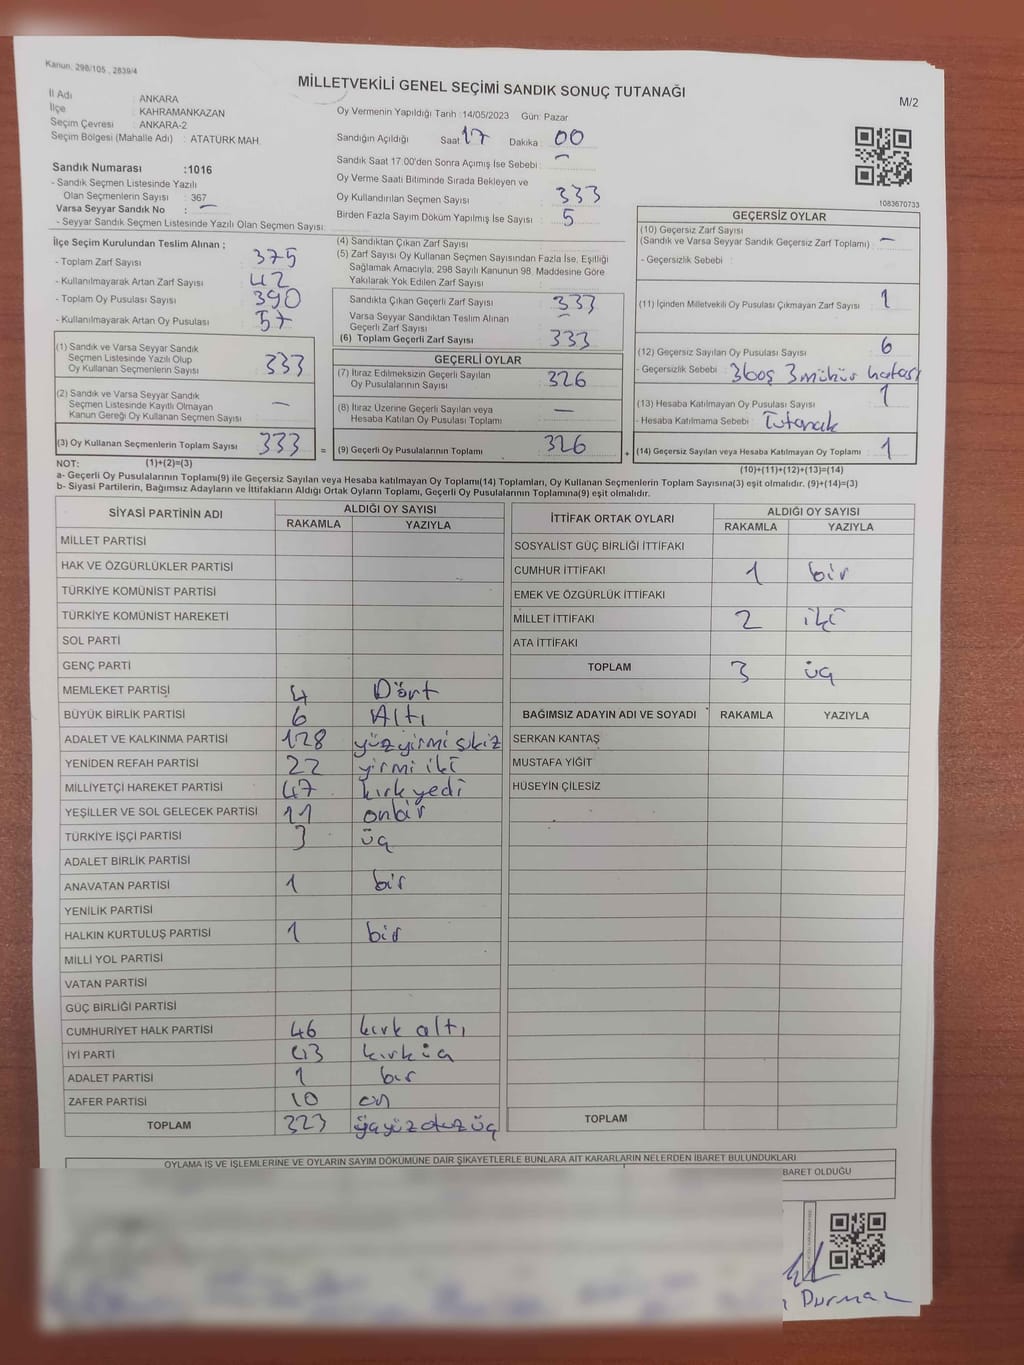 Kanun: 298/105 , 2839/4
MİLLETVEKİLİ GENEL SEÇİMİ SANDIK SONUÇ TUTANAĞI
M/2
İl Adı : ANKARA
İlçe : KAHRAMANKAZAN
Seçim Çevresi : ANKARA-2
Seçim Bölgesi (Mahalle Adı) : ATATÜRK MAH.
Oy Vermenin Yapıldığı Tarih :14/05/2023 Gün: Pazar
Sandığın Açıldığı Saat 17 Dakika : 00
Sandık Saat 17:00'den Sonra Açımış İse Sebebi : –
Oy Verme Saati Bitiminde Sırada Bekleyen ve
Oy Kullandırılan Seçmen Sayısı : 333
Birden Fazla Sayım Döküm Yapılmış İse Sayısı : 5
Sandık Numarası :1016
- Sandık Seçmen Listesinde Yazılı
Olan Seçmenlerin Sayısı : 367
Varsa Seyyar Sandık No : –
- Seyyar Sandık Seçmen Listesinde Yazılı Olan Seçmen Sayısı:
1083670733
İlçe Seçim Kurulundan Teslim Alınan ;
- Toplam Zarf Sayısı : 375
- Kullanılmayarak Artan Zarf Sayısı : 42
- Toplam Oy Pusulası Sayısı : 390
- Kullanılmayarak Artan Oy Pusulası : 57
(1) Sandık ve Varsa Seyyar Sandık
Seçmen Listesinde Yazılı Olup
Oy Kullanan Seçmenlerin Sayısı : 333
(2) Sandık ve Varsa Seyyar Sandık
Seçmen Listesinde Kayıtlı Olmayan
Kanun Gereği Oy Kullanan Seçmen Sayısı : –
(3) Oy Kullanan Seçmenlerin Toplam Sayısı : 333 =
(4) Sandıktan Çıkan Zarf Sayısı :
(5) Zarf Sayısı Oy Kullanan Seçmen Sayısından Fazla İse, Eşitliği
Sağlamak Amacıyla; 298 Sayılı Kanunun 98. Maddesine Göre
Yakılarak Yok Edilen Zarf Sayısı :
Sandıkta Çıkan Geçerli Zarf Sayısı : 333
Varsa Seyyar Sandıktan Teslim Alınan
Geçerli Zarf Sayısı : –
(6) Toplam Geçerli Zarf Sayısı : 333
GEÇERLİ OYLAR
(7) İtiraz Edilmeksizin Geçerli Sayılan
Oy Pusulalarının Sayısı : 326
(8) İtiraz Üzerine Geçerli Sayılan veya
Hesaba Katılan Oy Pusulası Toplamı : –
(9) Geçerli Oy Pusulalarının Toplamı : 326 +
GEÇERSİZ OYLAR
(10) Geçersiz Zarf Sayısı
(Sandık ve Varsa Seyyar Sandık Geçersiz Zarf Toplamı) : –
- Geçersizlik Sebebi :
(11) İçinden Milletvekili Oy Pusulası Çıkmayan Zarf Sayısı : 1
(12) Geçersiz Sayılan Oy Pusulası Sayısı : 6
- Geçersizlik Sebebi : 3boş 3mühür hatası
(13) Hesaba Katılmayan Oy Pusulası Sayısı : 1
- Hesaba Katılmama Sebebi : Tutanak
(14) Geçersiz Sayılan veya Hesaba Katılmayan Oy Toplamı : 1
NOT: (1)+(2)=(3)
(10)+(11)+(12)+(13)=(14)
a- Geçerli Oy Pusulalarının Toplamı(9) ile Geçersiz Sayılan veya Hesaba Katılmayan Oy Toplamı(14) Toplamları, Oy Kullanan Seçmenlerin Toplam Sayısına(3) eşit olmalıdır. (9)+(14)=(3)
b- Siyasi Partilerin, Bağımsız Adayların ve İttifakların Aldığı Ortak Oyların Toplamı, Geçerli Oy Pusulalarının Toplamına(9) eşit olmalıdır.
SİYASİ PARTİNİN ADI ALDIĞI OY SAYISI
RAKAMLA YAZIYLA
MİLLET PARTİSİ
HAK VE ÖZGÜRLÜKLER PARTİSİ
TÜRKİYE KOMÜNİST PARTİSİ
TÜRKİYE KOMÜNİST HAREKETİ
SOL PARTİ
GENÇ PARTİ
MEMLEKET PARTİSİ 4 Dört
BÜYÜK BİRLİK PARTİSİ 6 Altı
ADALET VE KALKINMA PARTİSİ 128 yüzyirmi sikiz
YENİDEN REFAH PARTİSİ 22 yirmi iki
MİLLİYETÇİ HAREKET PARTİSİ 47 kırkyedi
YEŞİLLER VE SOL GELECEK PARTİSİ 11 onbir
TÜRKİYE İŞÇİ PARTİSİ 3 üç
ADALET BİRLİK PARTİSİ
ANAVATAN PARTİSİ 1 bir
YENİLİK PARTİSİ
HALKIN KURTULUŞ PARTİSİ 1 bir
MİLLİ YOL PARTİSİ
VATAN PARTİSİ
GÜÇ BİRLİĞİ PARTİSİ
CUMHURİYET HALK PARTİSİ 46 kırk altı
İYİ PARTİ 43 kırk üç
ADALET PARTİSİ 1 bir
ZAFER PARTİSİ 10 on
TOPLAM 323 üçyüzotuzüç
İTTİFAK ORTAK OYLARI ALDIĞI OY SAYISI
RAKAMLA YAZIYLA
SOSYALİST GÜÇ BİRLİĞİ İTTİFAKI
CUMHUR İTTİFAKI 1 bir
EMEK VE ÖZGÜRLÜK İTTİFAKI
MİLLET İTTİFAKI 2 iki
ATA İTTİFAKI
TOPLAM 3 üç
BAĞIMSIZ ADAYIN ADI VE SOYADI RAKAMLA YAZIYLA
SERKAN KANTAŞ
MUSTAFA YİĞİT
HÜSEYİN ÇİLESİZ
TOPLAM
OYLAMA İŞ VE İŞLEMLERİNE VE OYLARIN SAYIM DÖKÜMÜNE DAİR ŞİKAYETLERLE BUNLARA AİT KARARLARIN NELERDEN İBARET BULUNDUKLARI
BARET OLDUĞU
Durmaz